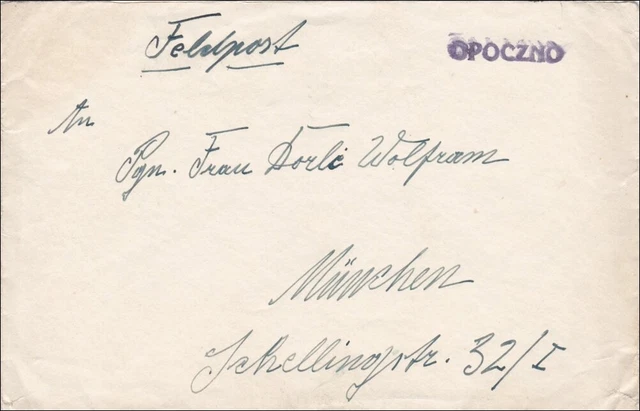 Feldpost
OPOCZNO
An
Pgn. Frau Dorle Wolfram
München
Schellingstr. 32/I